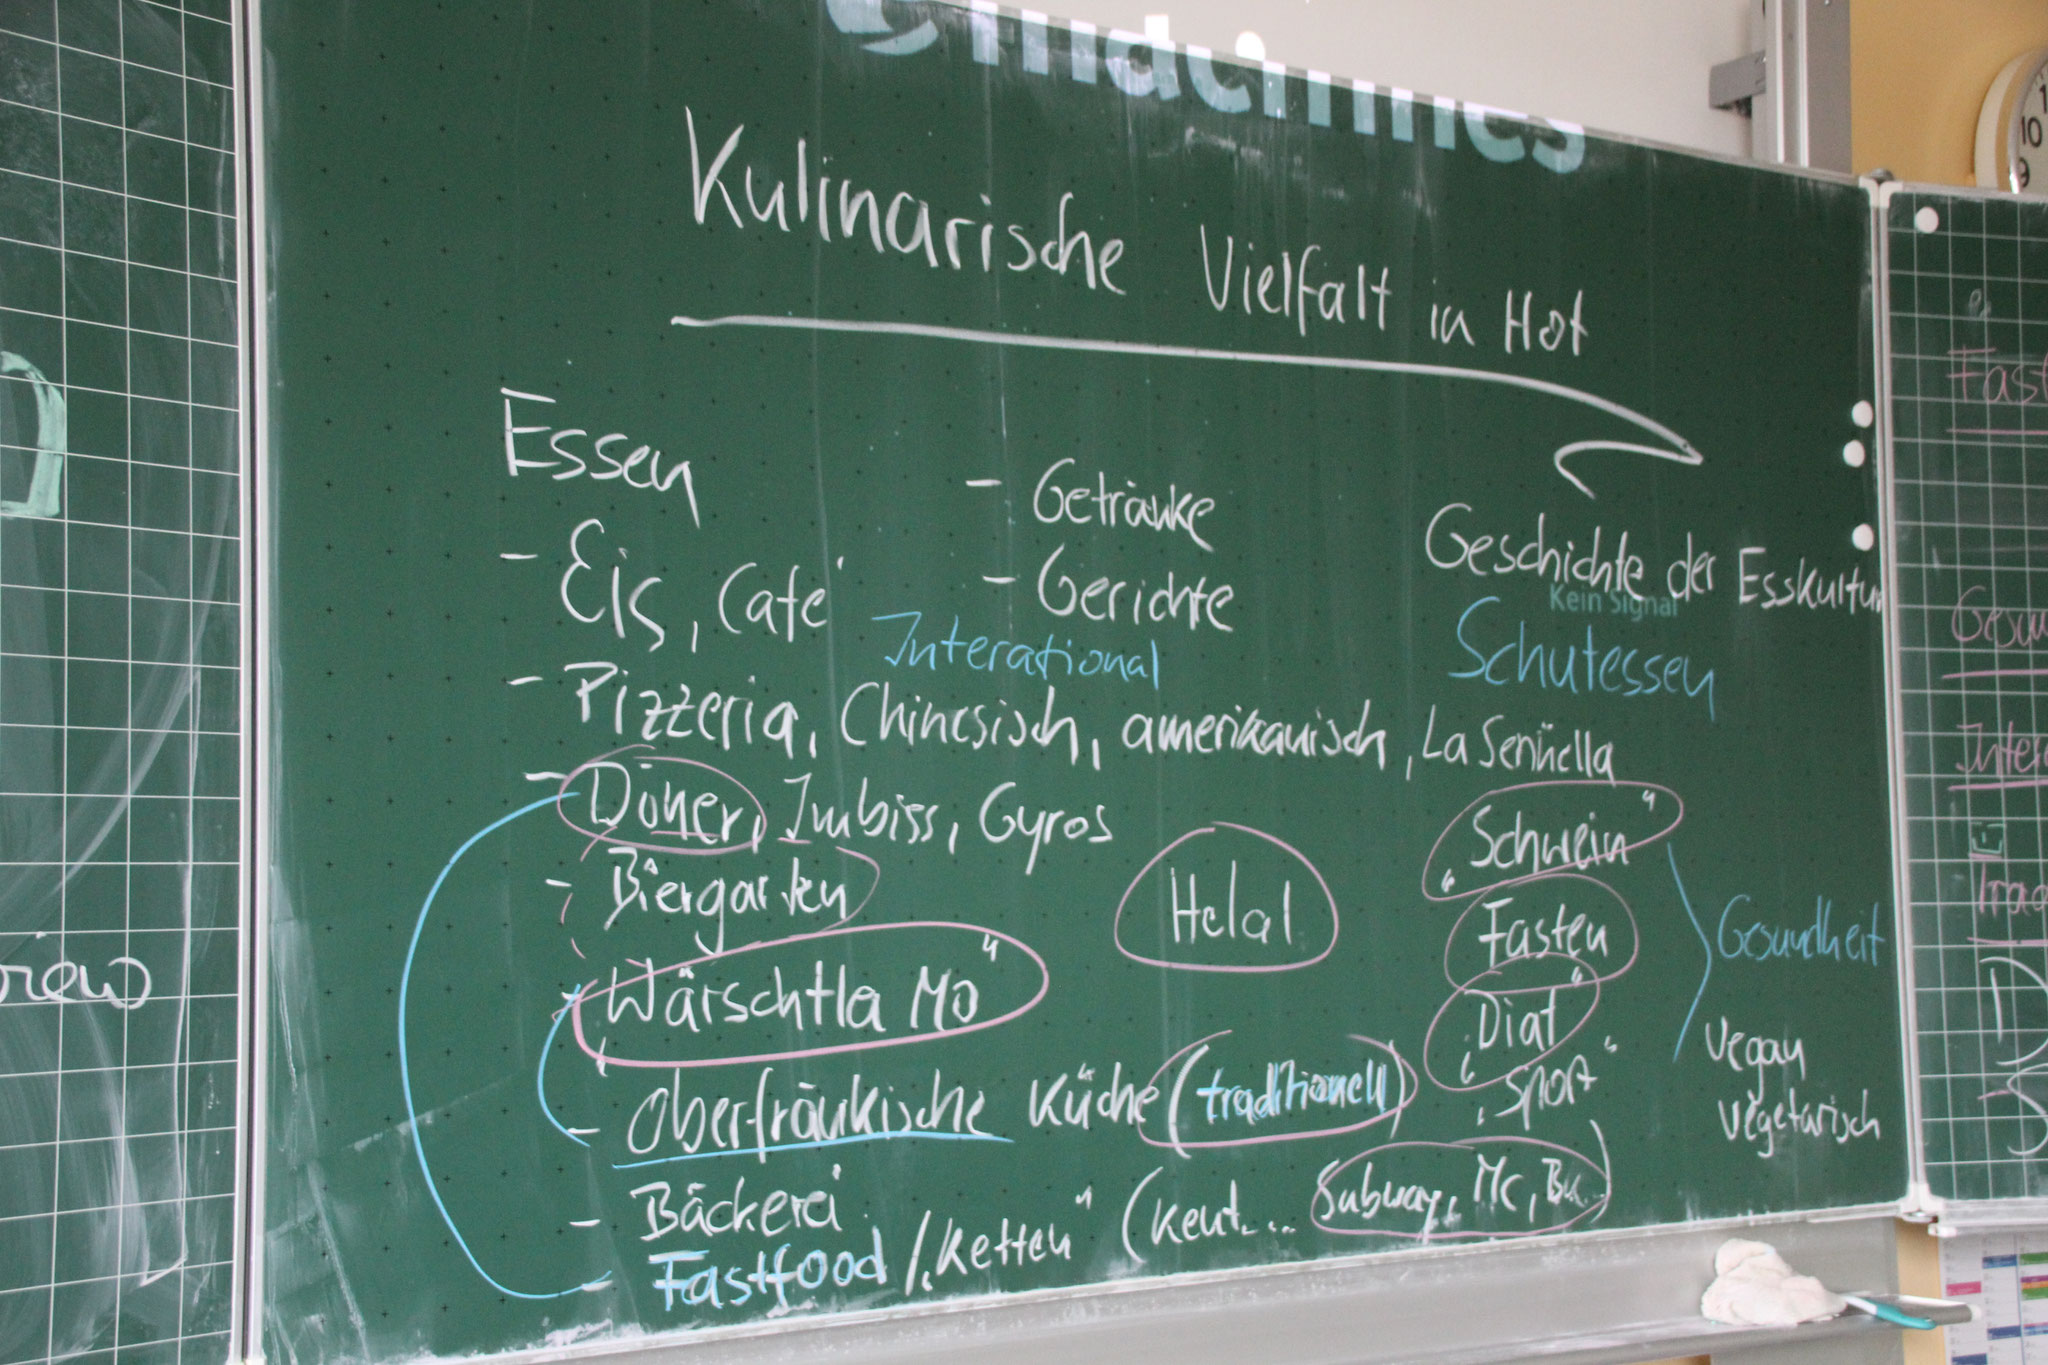 machines
Kulinarische Vielfalt in Hof
Essen
- Getränke
- Eis, Café
- Gerichte
Geschichte der Esskultur
Kein Signal
Interational
Schulessen
- Pizzeria, Chinesisch, amerikanisch, La
- Döner, Imbiss, Gyros
- Biergarten
Helal
„Schwein“
Fasten
„Diät“
„Sport“
Gesundheit
vegan
vegetarisch
- „Wärschtla Mo“
- Oberfränkische Küche (traditionell)
- Bäckerei
- Fastfood / „Ketten“ (Kent.... Subway, Mc, Bu...)
10
9
Fast
Gesun
Inter
trad